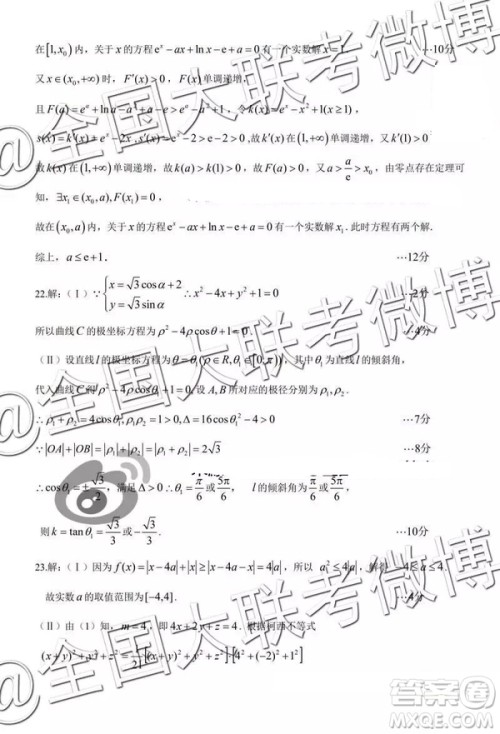 在[1,x₀)内，关于x的方程eˣ-ax+lnx-e+a=0有一个实数解x=1. ⋯10分
又x∈(x₀,+∞)时，F'(x)>0，F(x)单调递增，
且F(a)=eᵃ+lna-a²+a-e>eᵃ-a²+1，令k(x)=eˣ-x²+1(x≥1)，
s(x)=k'(x)=eˣ-2x,s'(x)=eˣ-2≥e-2>0,故k'(x)在(1,+∞)单调递增，又k'(1)>0
故k(x)在(1,+∞)单调递增，故k(a)>k(1)>0，故F(a)>0，又a>a/e>x₀，由零点存在定理可
知，∃x₁∈(x₀,a),F(x₁)=0，
故在(x₀,a)内，关于x的方程eˣ-ax+lnx-e+a=0有一个实数解x₁.此时方程有两个解.
综上，a≤e+1. ⋯12分
22.解：(Ⅰ)∵{x=√3cosα+2 y=√3sinα ∴x²-4x+y²+1=0 ⋯2分
所以曲线C的极坐标方程为ρ²-4ρcosθ+1=0. ⋯4分
(Ⅱ)设直线l的极坐标方程为θ=θ₁(ρ∈R,θ₁∈[0,π))，其中θ₁为直线l的倾斜角，
代入曲线C得ρ²-4ρcosθ₁+1=0,设A,B所对应的极径分别为ρ₁,ρ₂.
∴ρ₁+ρ₂=4cosθ₁,ρ₁ρ₂=1>0,Δ=16cos²θ₁-4>0 ⋯7分
∵|OA|+|OB|=|ρ₁|+|ρ₂|=|ρ₁+ρ₂|=2√3 ⋯8分
∴cosθ₁=±√3/2，满足Δ>0∴θ₁=π/6或5π/6，l的倾斜角为π/6或5π/6，
则k=tanθ₁=√3/3或-√3/3. ⋯10分
23.解：(Ⅰ)因为f(x)=|x-4a|+|x|≥|x-4a-x|=4|a|，所以 a²≤4|a|，解得 -4≤a≤4.
故实数a的取值范围为[-4,4]. ⋯4分
(Ⅱ)由(1)知，m=4，即4x+2y+z=4.根据柯西不等式
(x+y)²+y²+z²=1/21[(x+y)²+y²+z²]·[4²+(-2)²+1²]
@全国大联考微博
@全国大联考微博
@全国大联考微博
答案圈
MXQE.COM